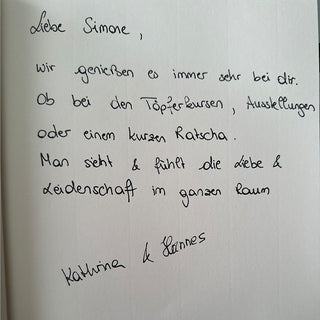 Liebe Simone,
wir genießen es immer sehr bei dir.
Ob bei den Töpferkursen, Ausstellungen
oder einem kurzen Ratscha.
Man sieht & fühlt die Liebe &
Leidenschaft im ganzen Raum
Kathrina & Hannes